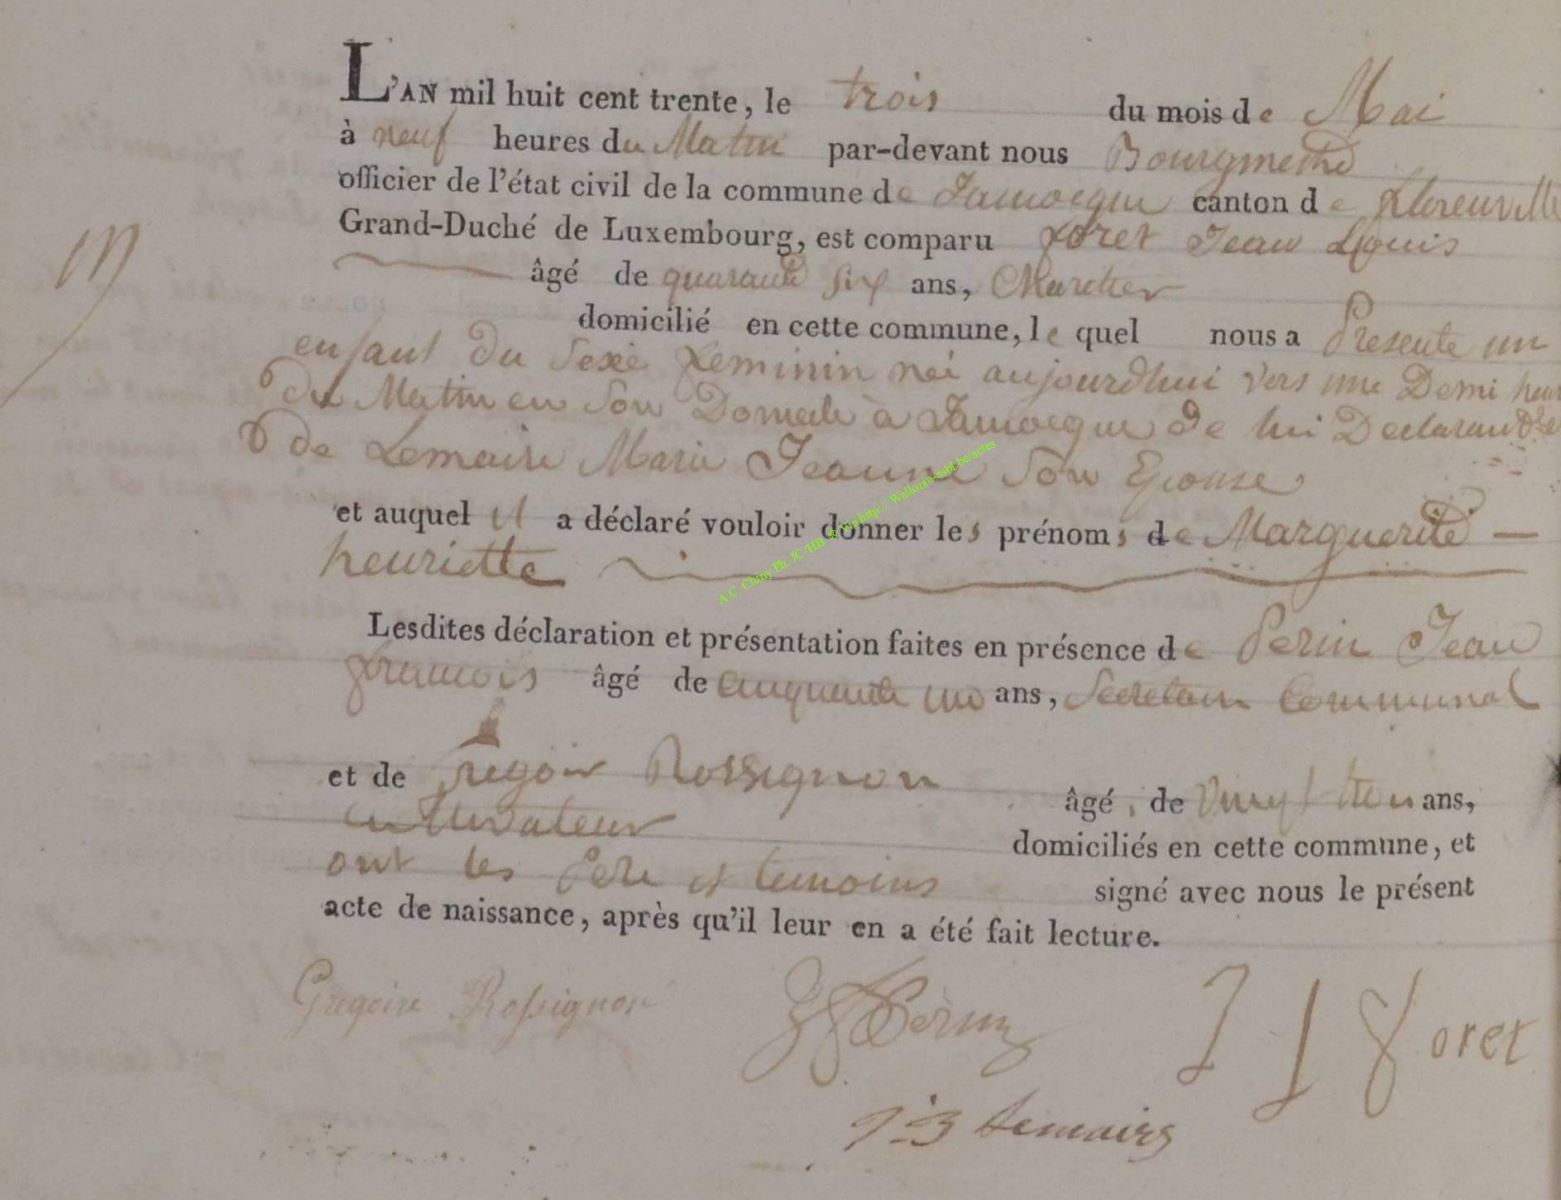 L'AN mil huit cent trente, le trois du mois de Mai
à neuf heures du Matin par-devant nous Bourgmestre
officier de l'état civil de la commune de Jamoigne canton de florenville
Grand-Duché de Luxembourg, est comparu foret Jean Louis
âgé de quarante six ans, Charetier
domicilié en cette commune, le quel nous a Presente un
enfant du Sexe feminin né aujourdhui vers une Demi heur
du Matin en Son Domicile à Jamoigne De lui Declarant &
& de Lemaire Marie Jeanne Son Epouse
et auquel il a déclaré vouloir donner les prénoms de Marguerite —
henriette
Lesdites déclaration et présentation faites en présence de Perin Jean
francois âgé de Cinquante un ans, Secretaire Communal
et de gregoire Rossignon âgé, de Vingt trois ans,
cultivateur domiciliés en cette commune, et
ont les Pere et temoins signé avec nous le présent
acte de naissance, après qu'il leur en a été fait lecture.
Gregoire Rossignon JF Perin J L foret
J J Lemaire